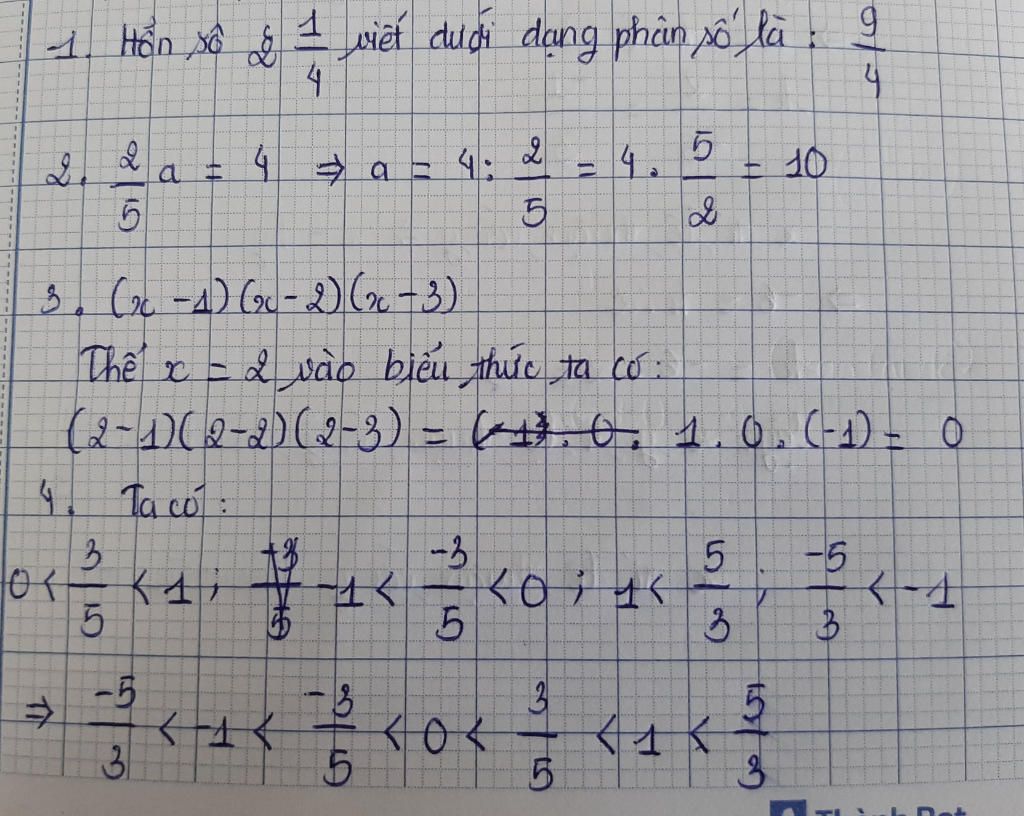 1. Hỗn số 2 1/4 viết dưới dạng phân số là : 9/4
2. 2/5 a = 4 ⇒ a = 4 : 2/5 = 4 . 5/2 = 10
3. (x - 1)(x - 2)(x - 3)
Thế x = 2 vào biểu thức ta có:
(2-1)(2-2)(2-3) = 1 . 0 . (-1) = 0
4. Ta có :
0 < 3/5 < 1 ; -1 < -3/5 < 0 ; 1 < 5/3 ; -5/3 < -1
⇒ -5/3 < -1 < -3/5 < 0 < 3/5 < 1 < 5/3